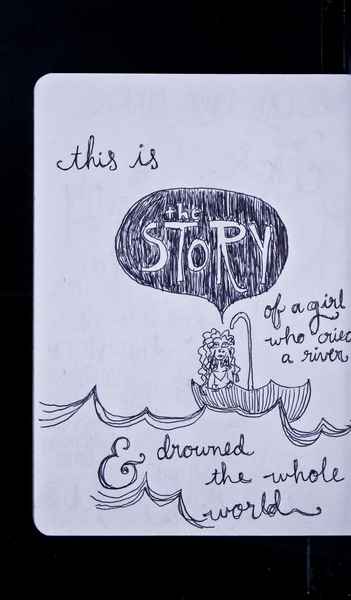 this is
the
STORY
of a girl
who cried
a river
& drowned
the whole
world